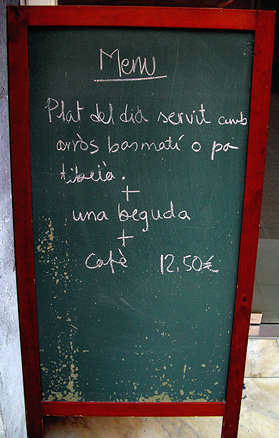 Menu
Plat del dia servit amb
arròs basmatí o pa
tibetà.
+
una beguda
+
Cafè 12,50€